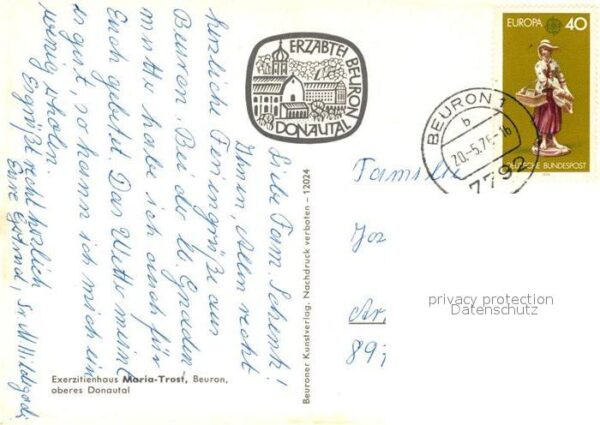 Liebe Fam. Schenk!
Ihnen, Allen recht
herzliche Feriengrüße aus
Beuron. Bei der lb. Gnaden
mutter habe ich auch für
Euch gebetet. Das Wetter meint
es gut, so kann ich mich ein
wenig erholen.
Es grüßt recht herzlich
Eure Sr. M. Hildegard
Exerzitienhaus Maria-Trost, Beuron,
oberes Donautal
Beuroner Kunstverlag. Nachdruck verboten – 12024
ERZABTEI BEURON
DONAUTAL
BEURON 1
b
20.-5.76-16
7792
EUROPA 40
DEUTSCHE BUNDESPOST
Familie
Jo
Ar
897
privacy protection
Datenschutz